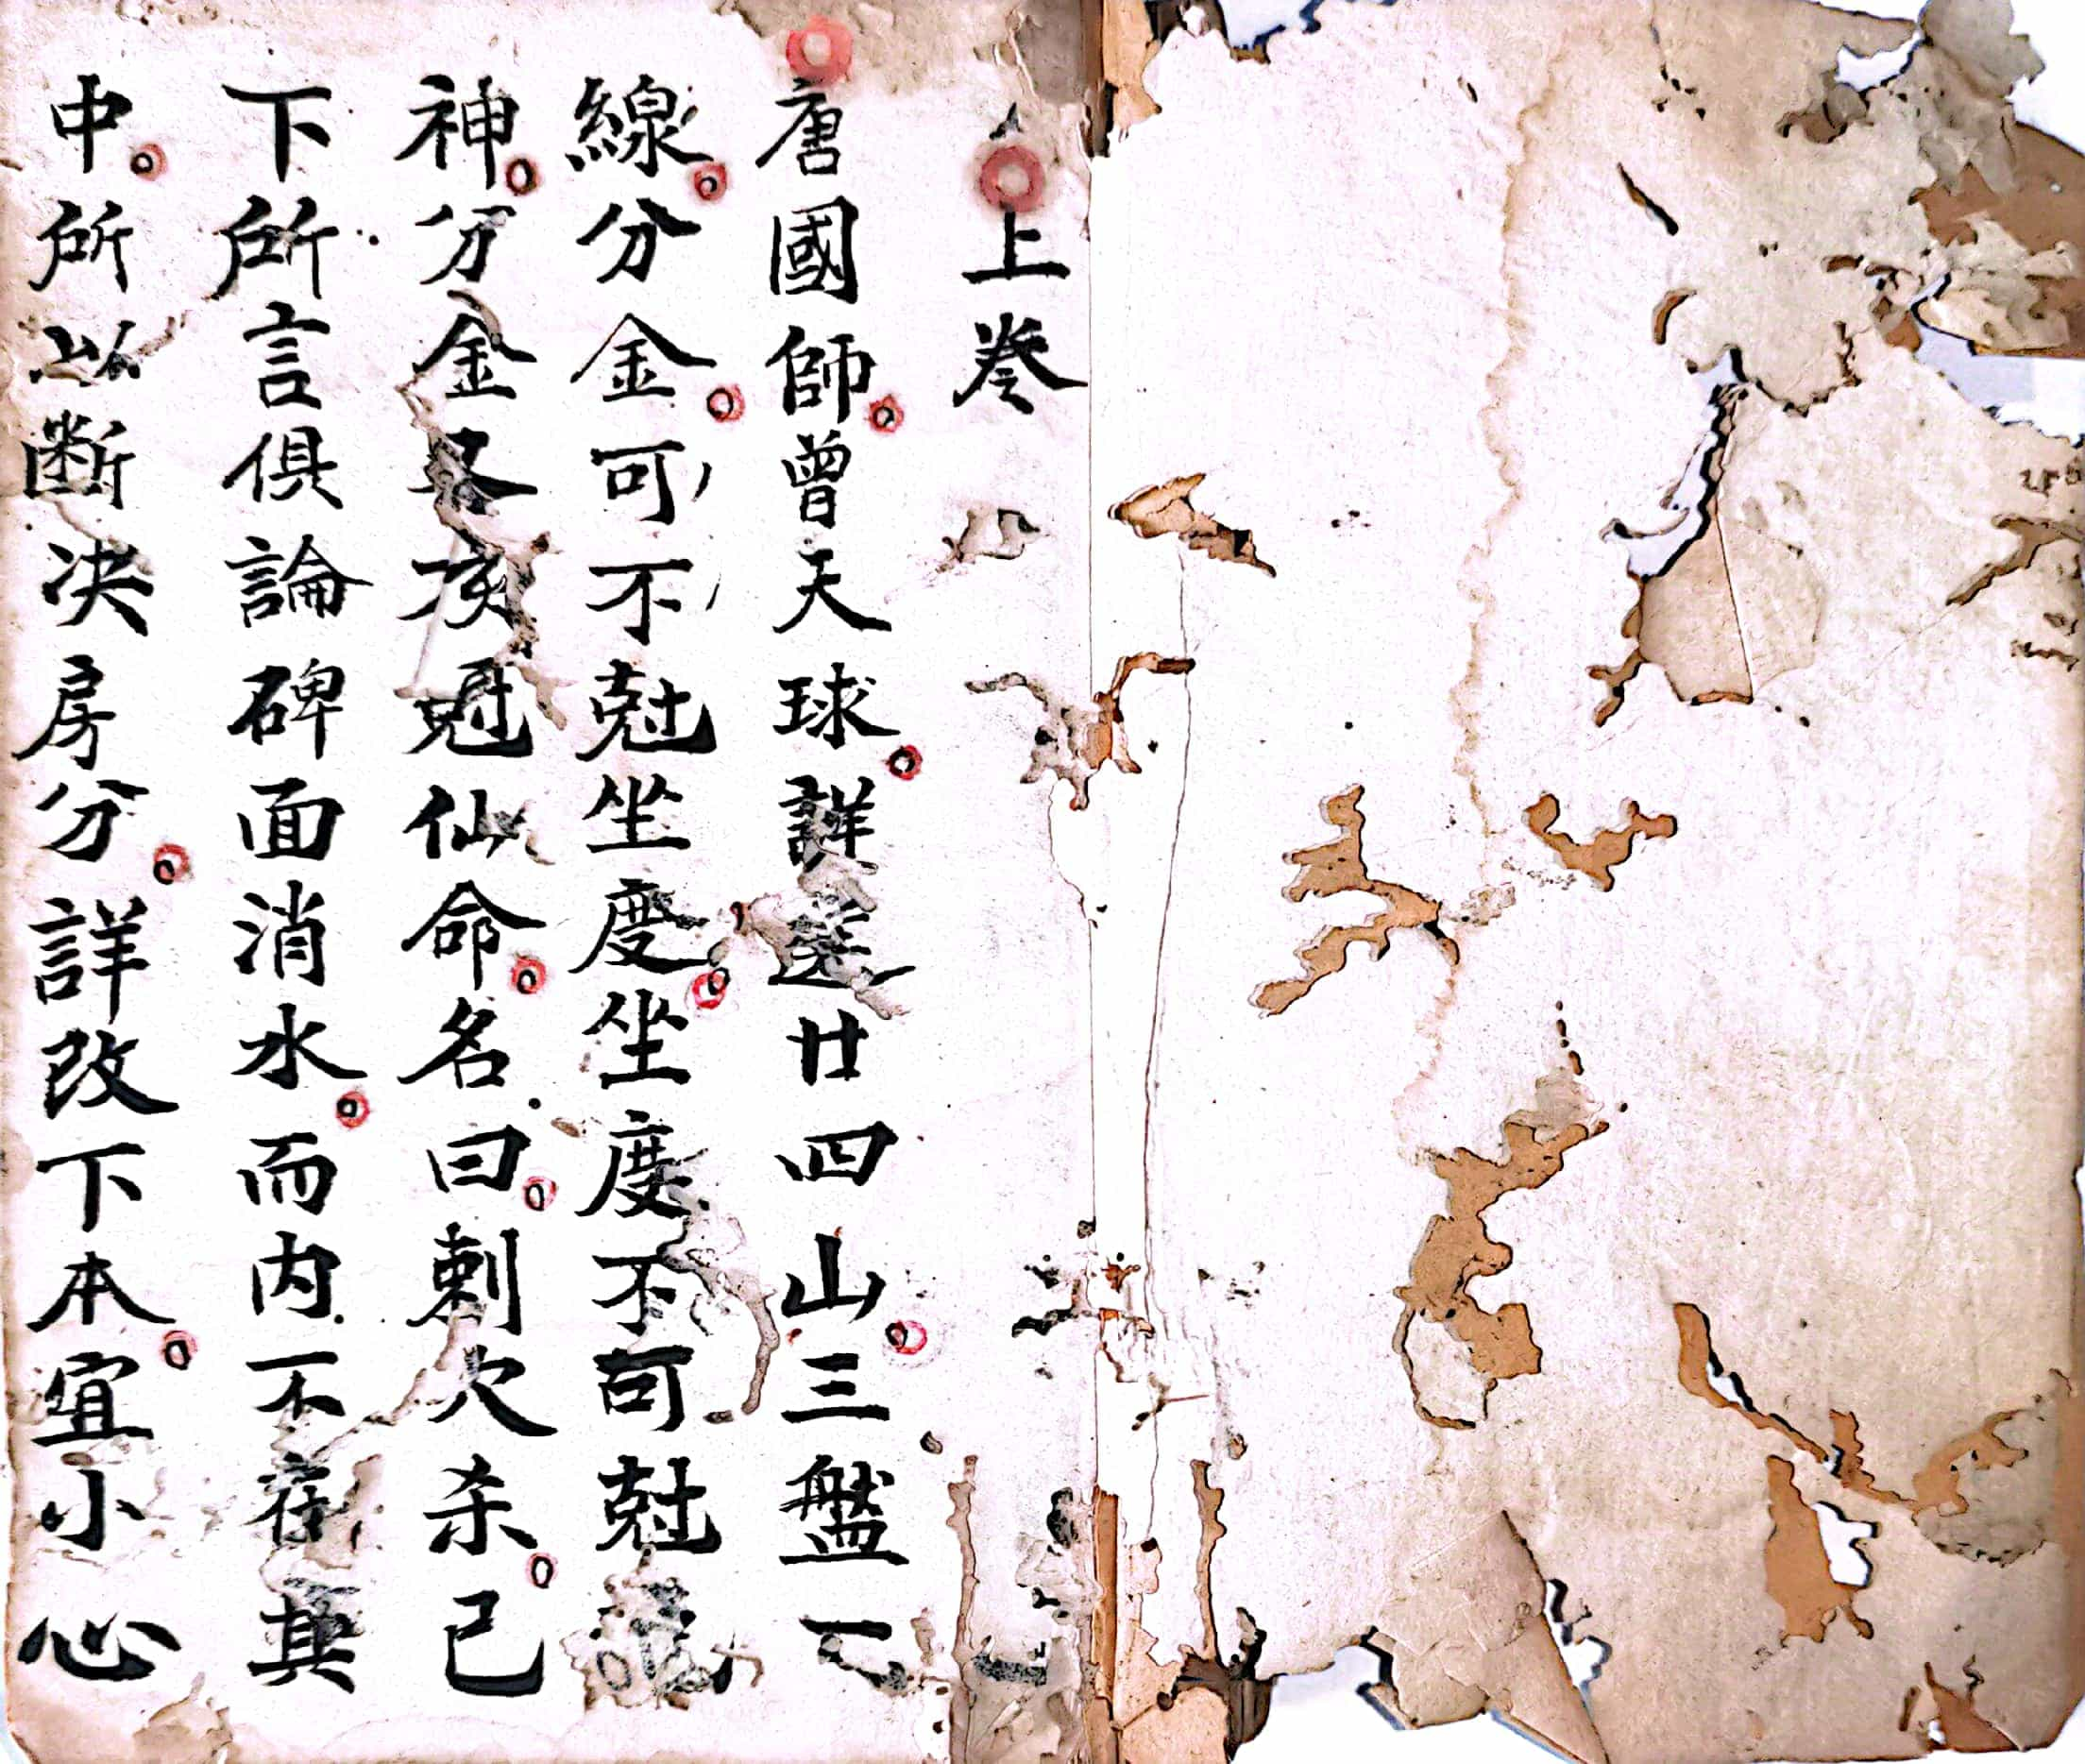 上卷
唐國師曾天球詳選廿四山三盤
線分金可不尅坐度坐度不可尅
神分金名㑹尅仙命名曰刺穴杀已
下所言俱論碑面消水而内不在其
中所以断决房分詳改下本宜小心